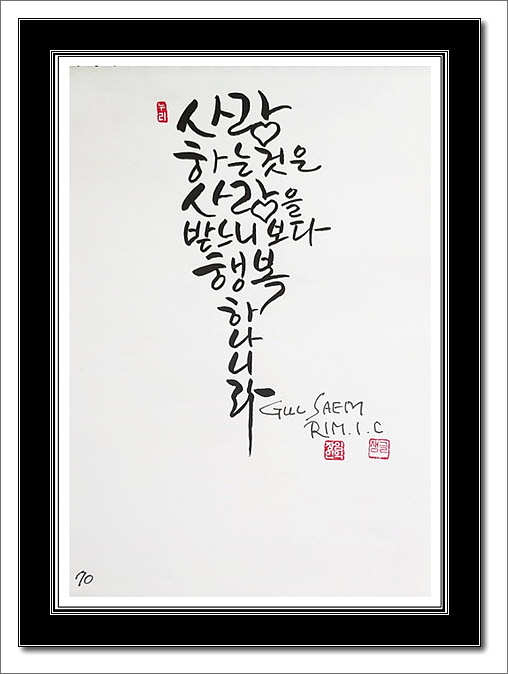 누리
사랑
하는것은
사랑을
받느니보다
행복
하나니
라
GUL SAEM
RIM.I.C
글샘
70